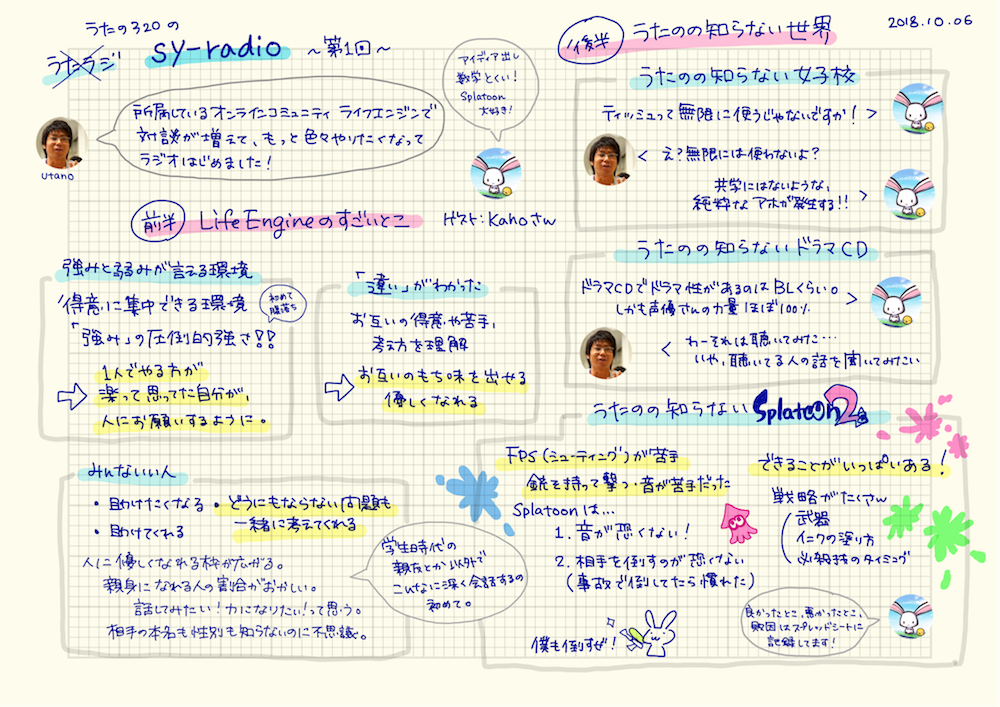 うたの320の
うたラジ
sy-radio ～第1回～
アイディア出し
数学とくい！
Splatoon
大好き！
所属しているオンラインコミュニティ ライフエンジンで
対談が増えて、もっと色々やりたくなって
ラジオはじめました！
utano
前半 Life Engineのすごいとこ ゲスト：Kahoさん
強みと弱みが言える環境
得意に集中できる環境
初めて
腹落ち
「強み」の圧倒的強さ!!
1人でやる方が
楽って思ってた自分が、
人にお願いするように。
「違い」がわかった
お互いの得意や苦手、
考え方を理解
お互いのもち味を出せる
優しくなれる
みんないい人
・助けたくなる
・助けてくれる
・どうにもならない問題も
一緒に考えてくれる
人に優しくなれる枠が広がる。
親身になれる人の割合がおかしい。
話してみたい！力になりたい！って思う。
相手の本名も性別も知らないのに不思議。
学生時代の
親友とか以外で
こんなに深く会話するの
初めて。
後半 うたのの知らない世界
2018.10.06
うたのの知らない女子校
ティッシュって無限に使うじゃないですか！
え？無限には使わないよ？
共学にはないような、
純粋なアホが発生する!!
うたのの知らないドラマCD
ドラマCDでドラマ性があるのはBLくらい。
しかも声優さんの力量ほぼ100%
わーそれは聴いてみた…
いや、聴いてる人の話を聞いてみたい
うたのの知らない Splatoon2
FPS（シューティング）が苦手
銃を持って撃つ・音が苦手だった
Splatoonは…
1. 音が恐くない！
2. 相手を倒すのが恐くない
（事故で倒してたら慣れた）
僕も倒すぜ！
できることがいっぱいある！
戦略がたくさん
武器
インクの塗り方
必殺技のタイミング
良かったとこ、悪かったとこ、
敗因はスプレッドシートに
記録してます！